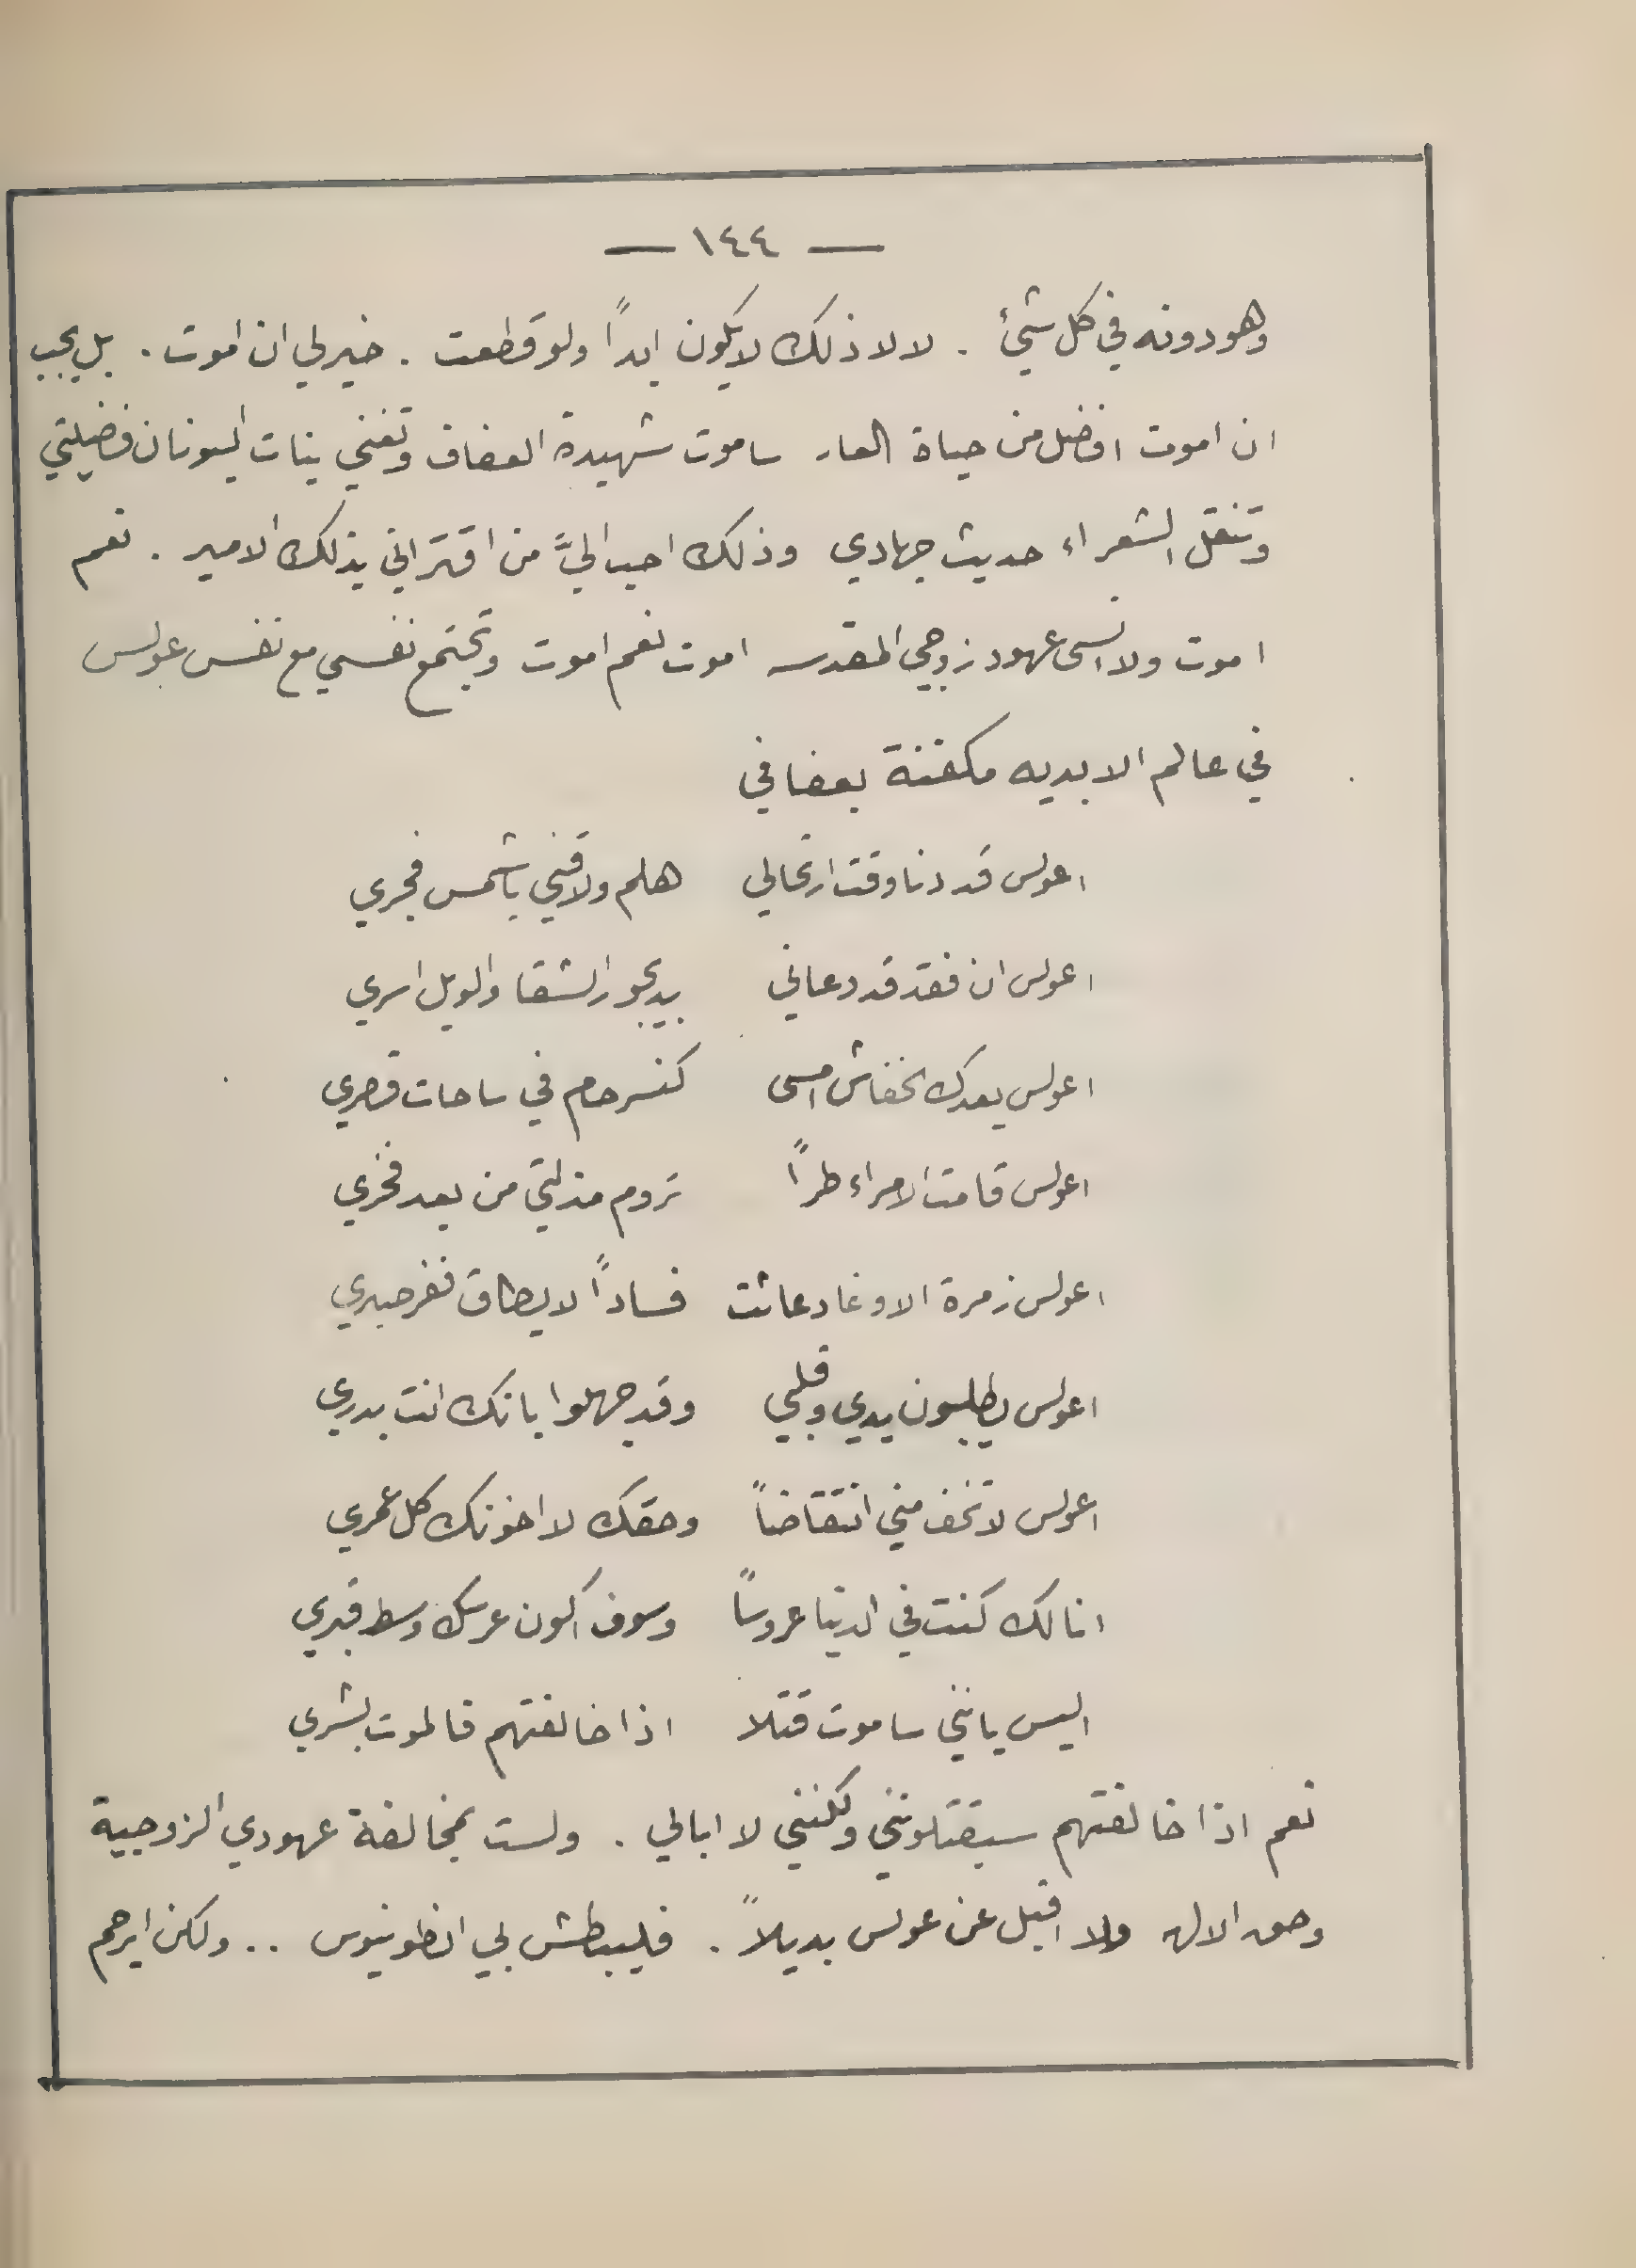 — ١٤٤ —
وهو دونه في كل شيئ . لا لا ذلك لا يكون ابداً ولو قطعت . خير لي ان اموت . بل يجب
ان اموت افضل من حياة العار ساموت شهيدة العفاف وتغني بنات اليونان فضيلتي
وتنقل الشعراء حديث جهادي وذلك احب اليَّ من اقتراني بذلك الامير . نعم
اموت ولا انسى عهود زوجي المقدسه اموت نعم اموت وتجتمع نفسي مع نفس عولس
في عالم الابديه مكفنة بعفافي
اعولس قد دنا وقت ارتحالي هلم ولاقني يا شمس فجري
اعولس ان فقد قد دعاني بديجور الشقا والويل اسري
اعولس بعدك الخفاش امسى كنسر حام في ساحات قصري
اعولس قامت الامراء طراً تروم مذلتي من بعد فخري
اعولس زمرة الاوغاد عاثت فساداً لا يطاق ففر صبري
اعولس يطلبون يدي وقلبي وقد جهلوا بانك انت بدري
اعولس لا تخف مني انتقاضاً وحقك لا اخونك كل عمري
انا لك كنت في الدنيا عروساً وسوف اكون عرسك وسط قبري
اليس بانني ساموت قتلا اذا خالفتهم فالموت بشري
نعم اذا خالفتهم سيقتلونني ولكنني لا ابالي . ولست بمخالفة عهودي الزوجية
وحق الاله ولا اقبل عن عولس بديلاً . فليبطش بي انطونيوس .. ولكن ايرحم